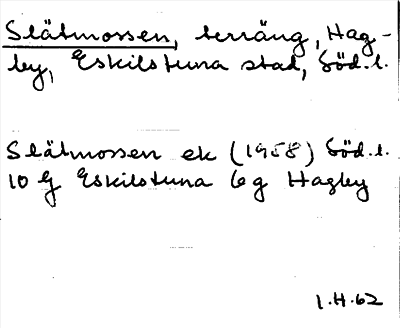 Slätmossen, terräng, Hag-
by, Eskilstuna stad, Söd. l.
Slätmossen ek (1958) Söd. l.
10 G Eskilstuna 6g Hagby
1.H.62